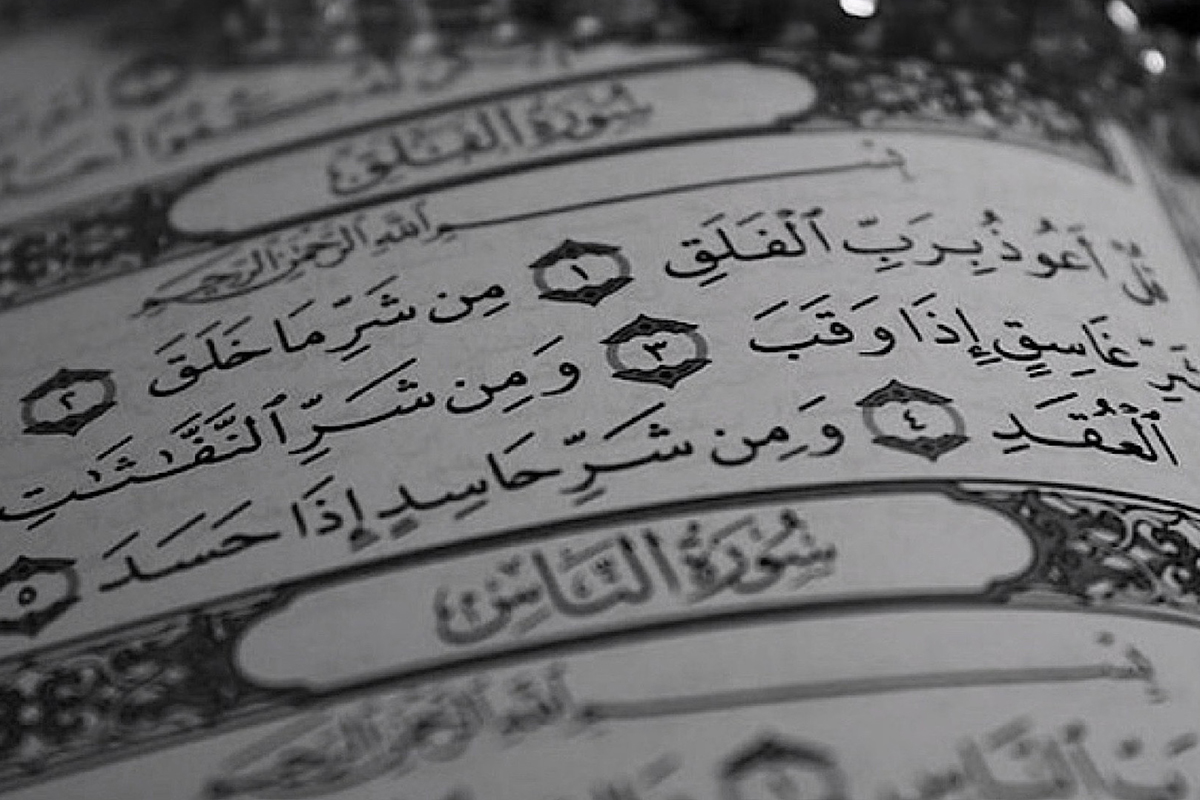 سُورَةُ الْفَلَقِ
بِسْمِ اللَّهِ الرَّحْمَٰنِ الرَّحِيمِ
قُلْ أَعُوذُ بِرَبِّ ٱلْفَلَقِ ١ مِن شَرِّ مَا خَلَقَ ٢
غَاسِقٍ إِذَا وَقَبَ ٣ وَمِن شَرِّ ٱلنَّفَّٰثَٰتِ
ٱلْعُقَدِ ٤ وَمِن شَرِّ حَاسِدٍ إِذَا حَسَدَ ٥
سُورَةُ النَّاسِ
بِسْمِ اللَّهِ الرَّحْمَٰنِ الرَّحِيمِ